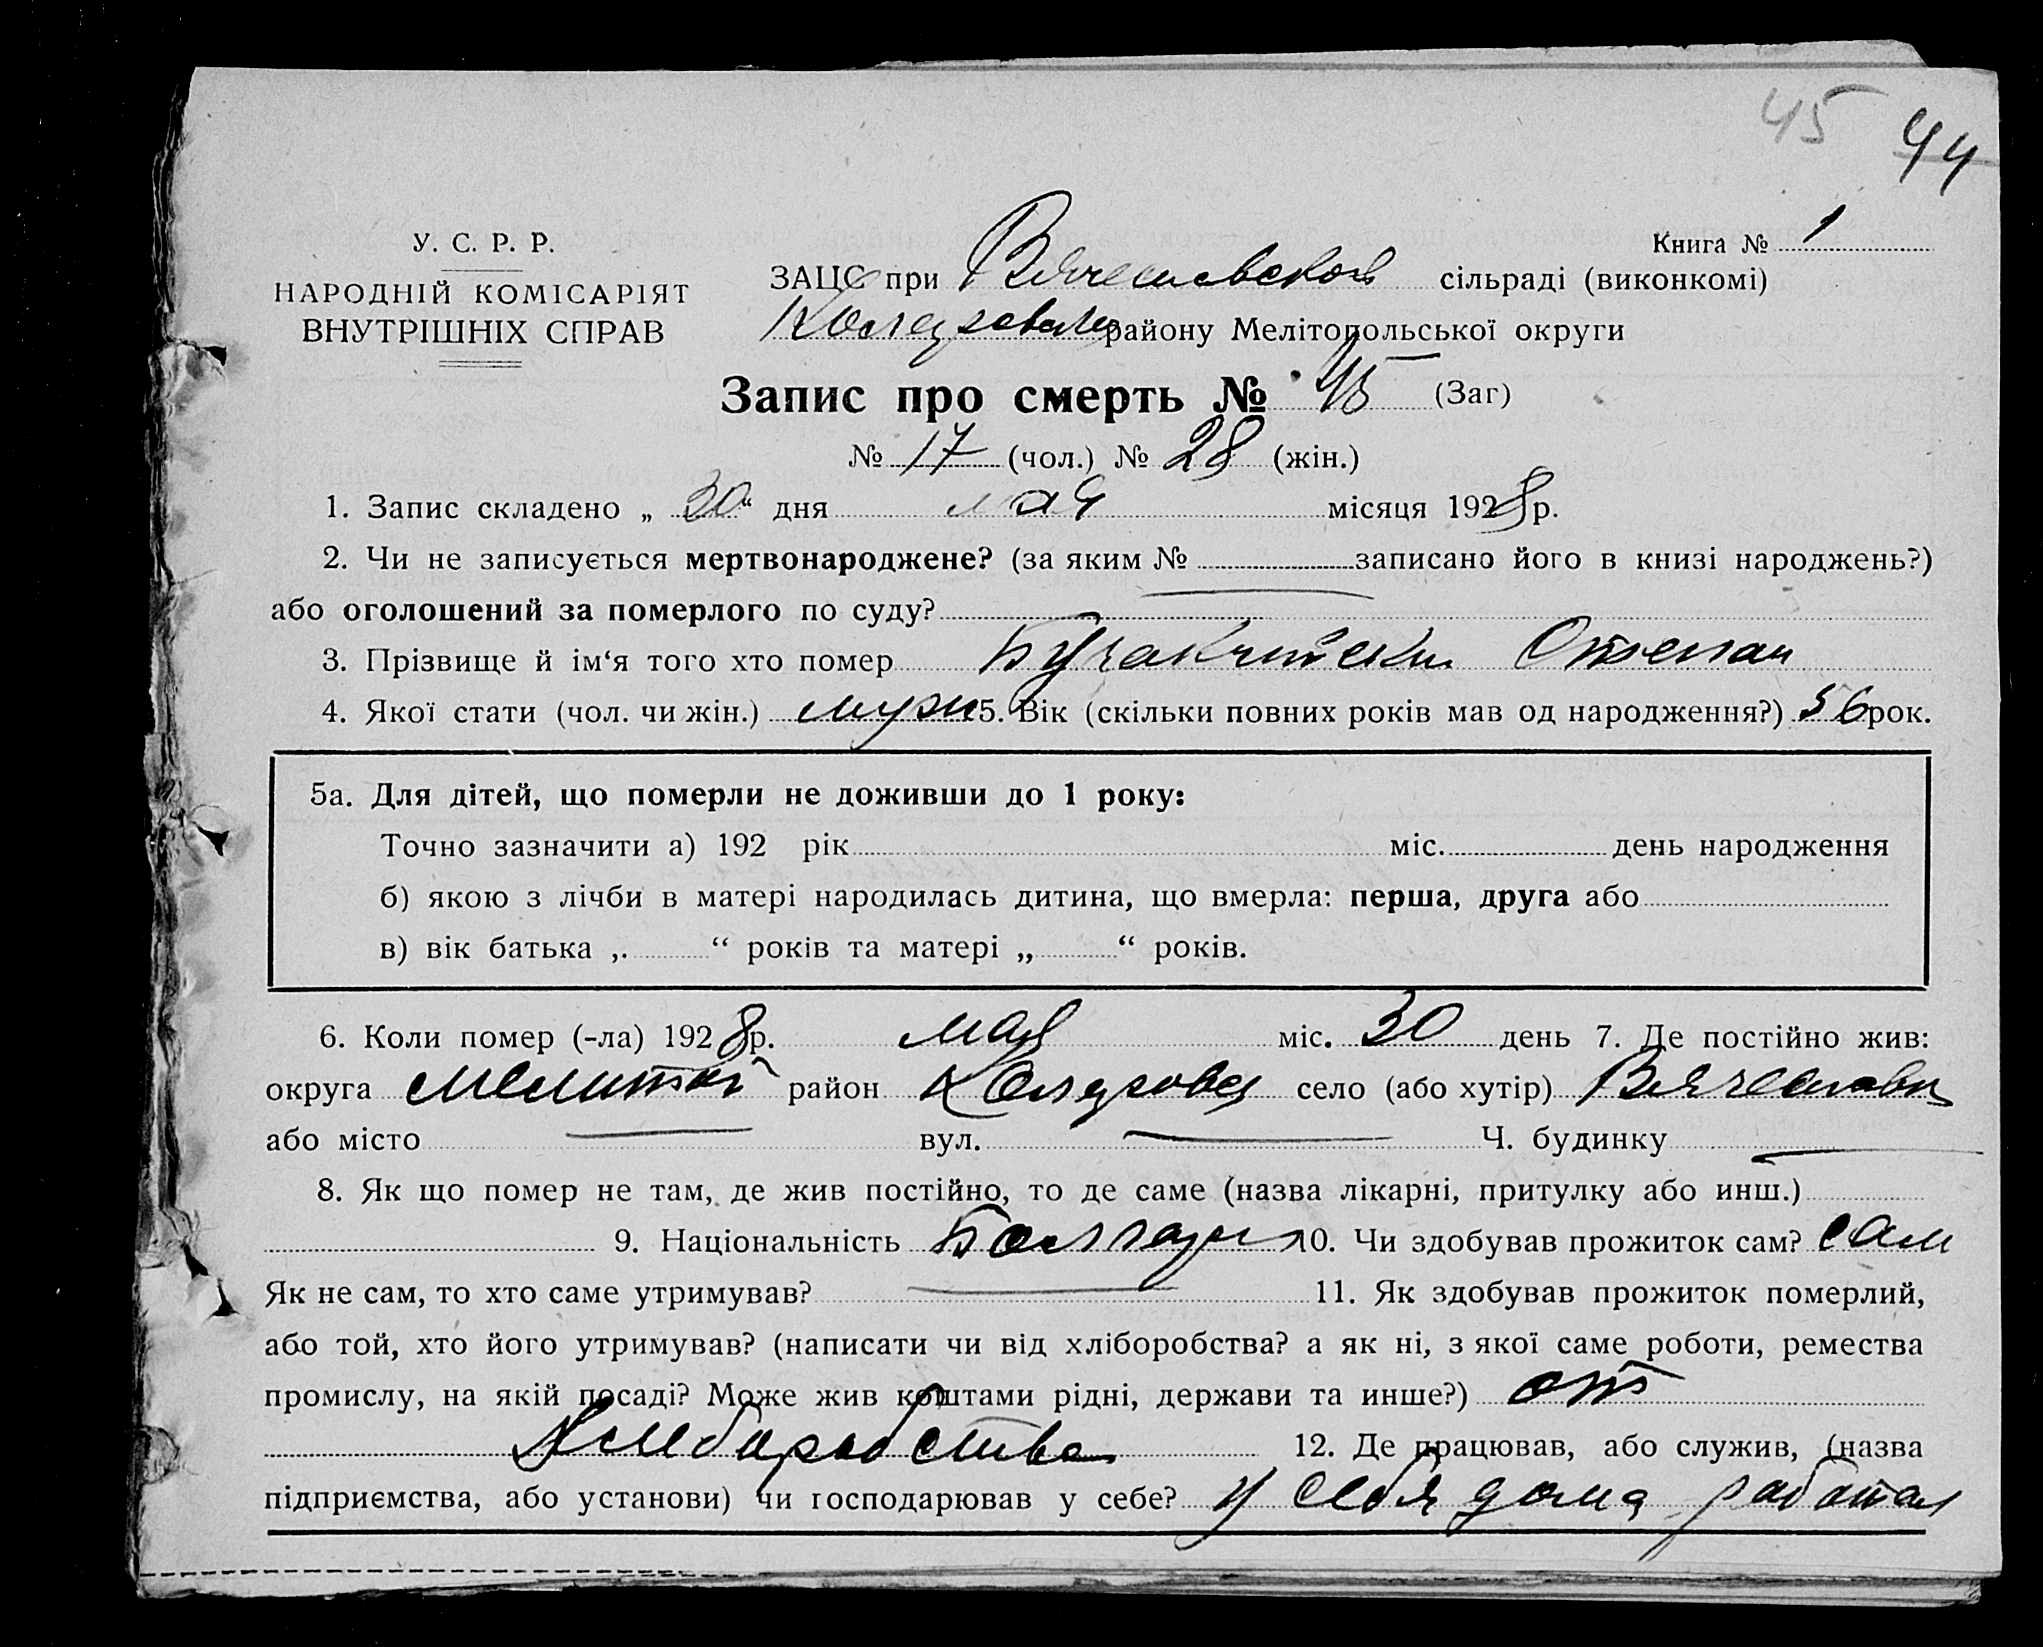 45
44
У. С. Р. Р.
НАРОДНІЙ КОМІСАРІЯТ
ВНУТРІШНІХ СПРАВ
Книга № 1
ЗАЦС при Вячеславской сільраді (виконкомі)
району Мелітопольської округи
Запис про смерть № 45 (Заг)
№ 17 (чол.) № 28 (жін.)
1. Запис складено „ 30 “ дня мая місяця 1928 р.
2. Чи не записується мертвонароджене? (за яким № записано його в книзі народжень?)
або оголошений за померлого по суду?
3. Прізвище й ім‘я того хто помер Степан
4. Якої стати (чол. чи жін.) муж 5. Вік (скільки повних років мав од народження?) 56 рок.
5а. Для дітей, що померли не доживши до 1 року:
Точно зазначити а) 192 рік міс. день народження
б) якою з лічби в матері народилась дитина, що вмерла: перша, друга або
в) вік батька „ “ років та матері „ “ років.
6. Коли помер (-ла) 1928 р. мая міс. 30 день 7. Де постійно жив:
округа Мелитоп район село (або хутір) Вячеславка
або місто — вул. — Ч. будинку —
8. Як що помер не там, де жив постійно, то де саме (назва лікарні, притулку або инш.)
9. Національність Болгари 10. Чи здобував прожиток сам? сам
Як не сам, то хто саме утримував? — 11. Як здобував прожиток померлий,
або той, хто його утримував? (написати чи від хліборобства? а як ні, з якої саме роботи, ремества
промислу, на якій посаді? Може жив коштами рідні, держави та инше?) от
хлеборобства 12. Де працював, або служив, (назва
підприємства, або установи) чи господарював у себе? у себя дома работал